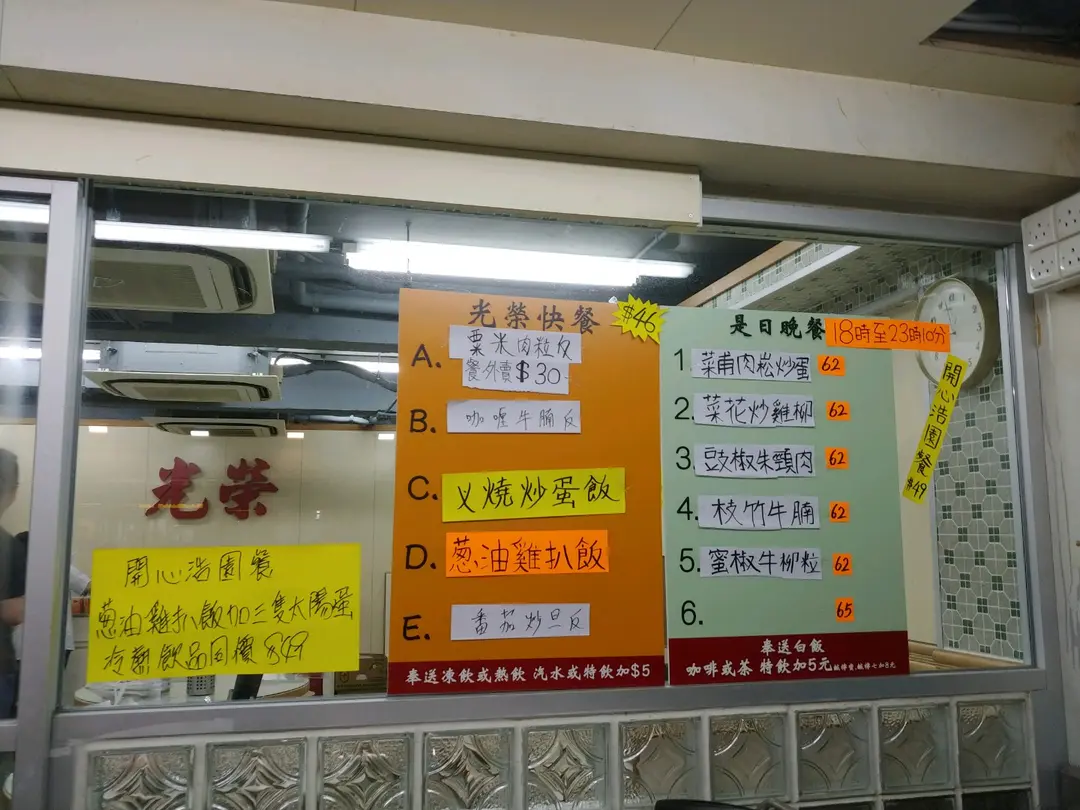 光榮快餐
$46
A.
粟米肉粒反
餐外賣$30
B.
咖喱牛腩反
C.
义燒炒蛋飯
D.
葱油雞扒飯
E.
番茄炒旦反
奉送凍飲或熱飲 汽水或特飲加$5
是日晚餐
18時至23時10分
1.
菜甫肉崧炒蛋 62
2.
菜花炒雞柳 62
3.
豉椒朱頸肉 62
4.
枝竹牛腩 62
5.
蜜椒牛柳粒 62
6.
65
奉送白飯
咖啡或茶 特飲加5元
開心浩園餐
$49
光榮
開心浩園餐
葱油雞扒飯加三隻太陽蛋
冷熱飲品同價 $49